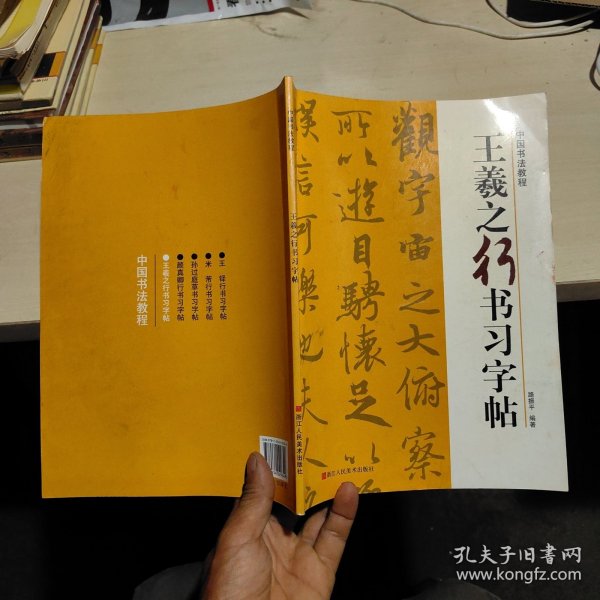 中国书法教程
王羲之行书习字帖
路振平 编著
觀宇宙之大俯察
所以遊目騁懷足以
娱信可樂也夫人
浙江人民美术出版社
王羲之行书习字帖
浙江人民美术出版社
●王 铎行书习字帖
●米 芾行书习字帖
●孙过庭草书习字帖
●颜真卿行书习字帖
●王羲之行书习字帖
中国书法教程
孔夫子旧书网
www.kongfz.com